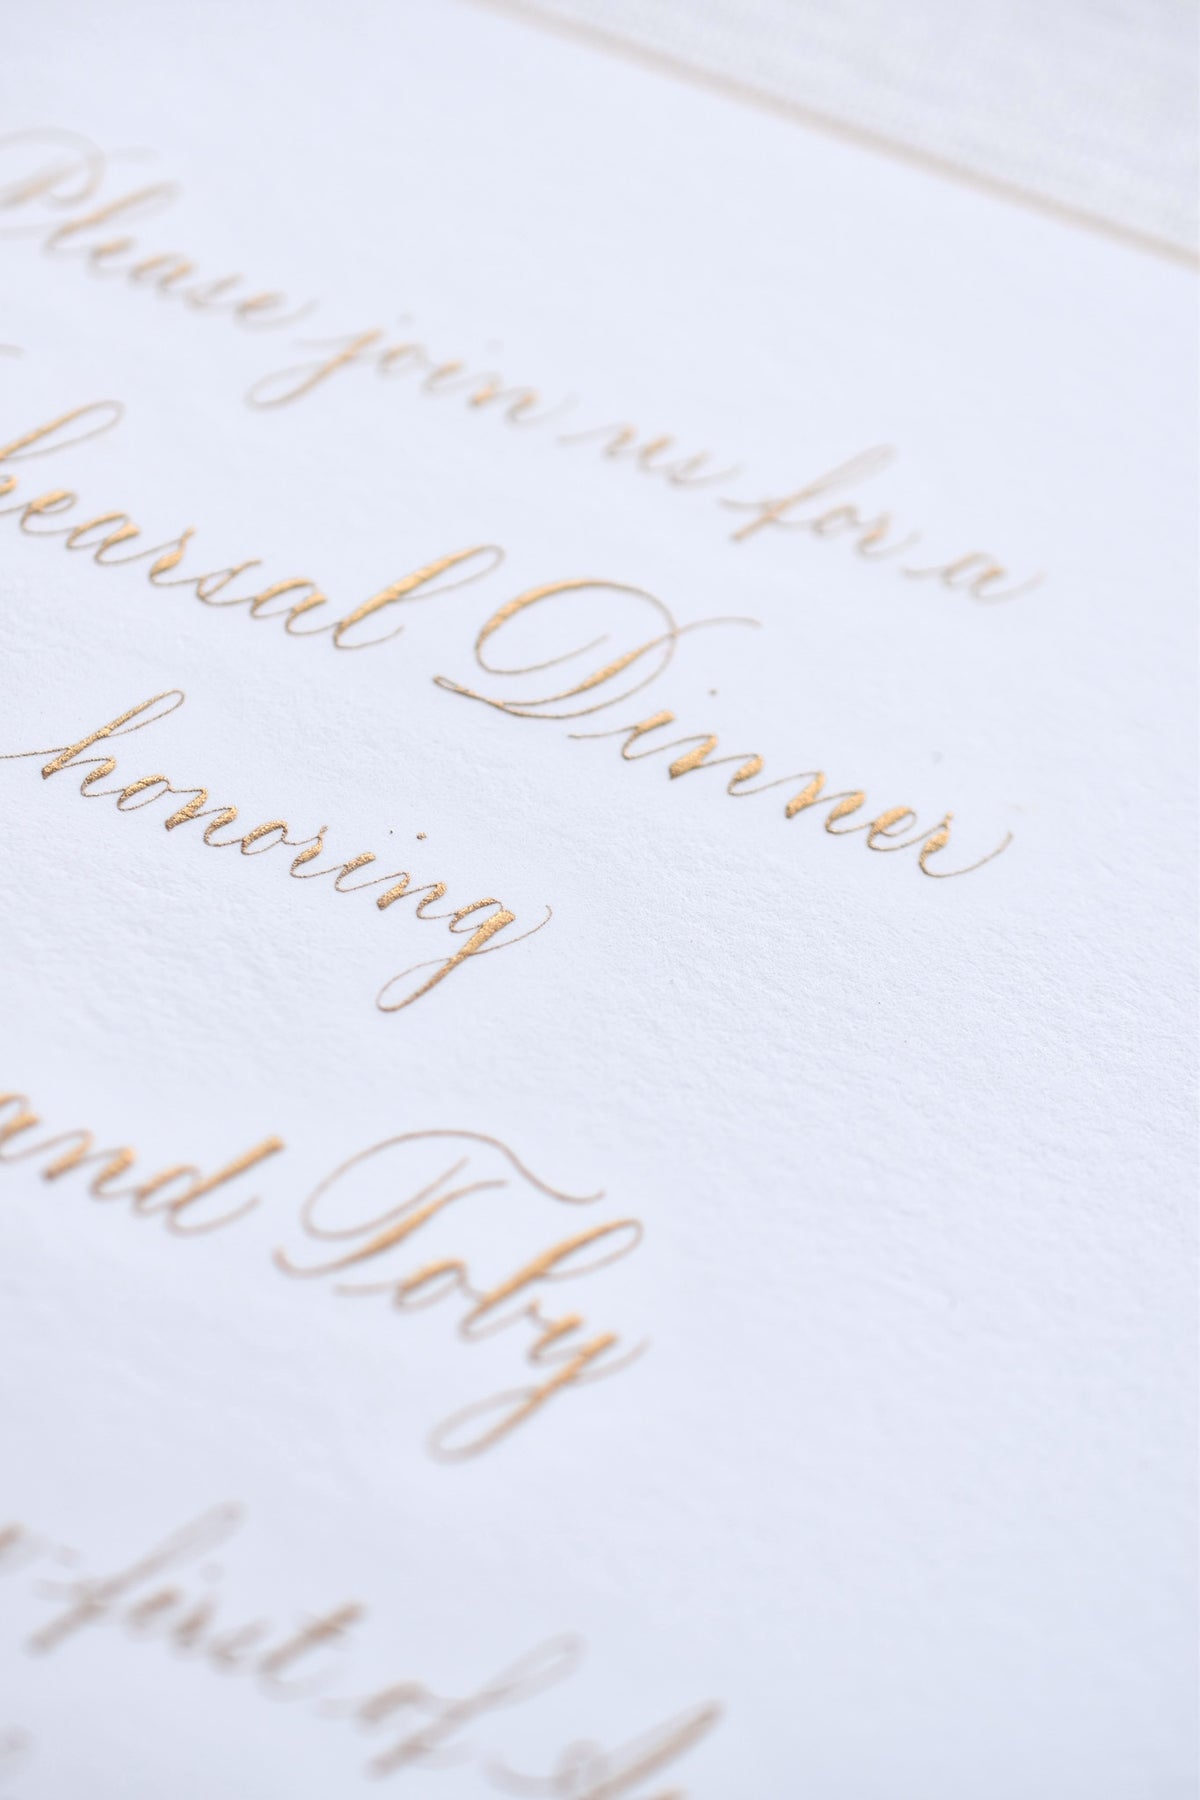 Please join us for a
hearsal Dinner
honoring
and Toby
y-first of